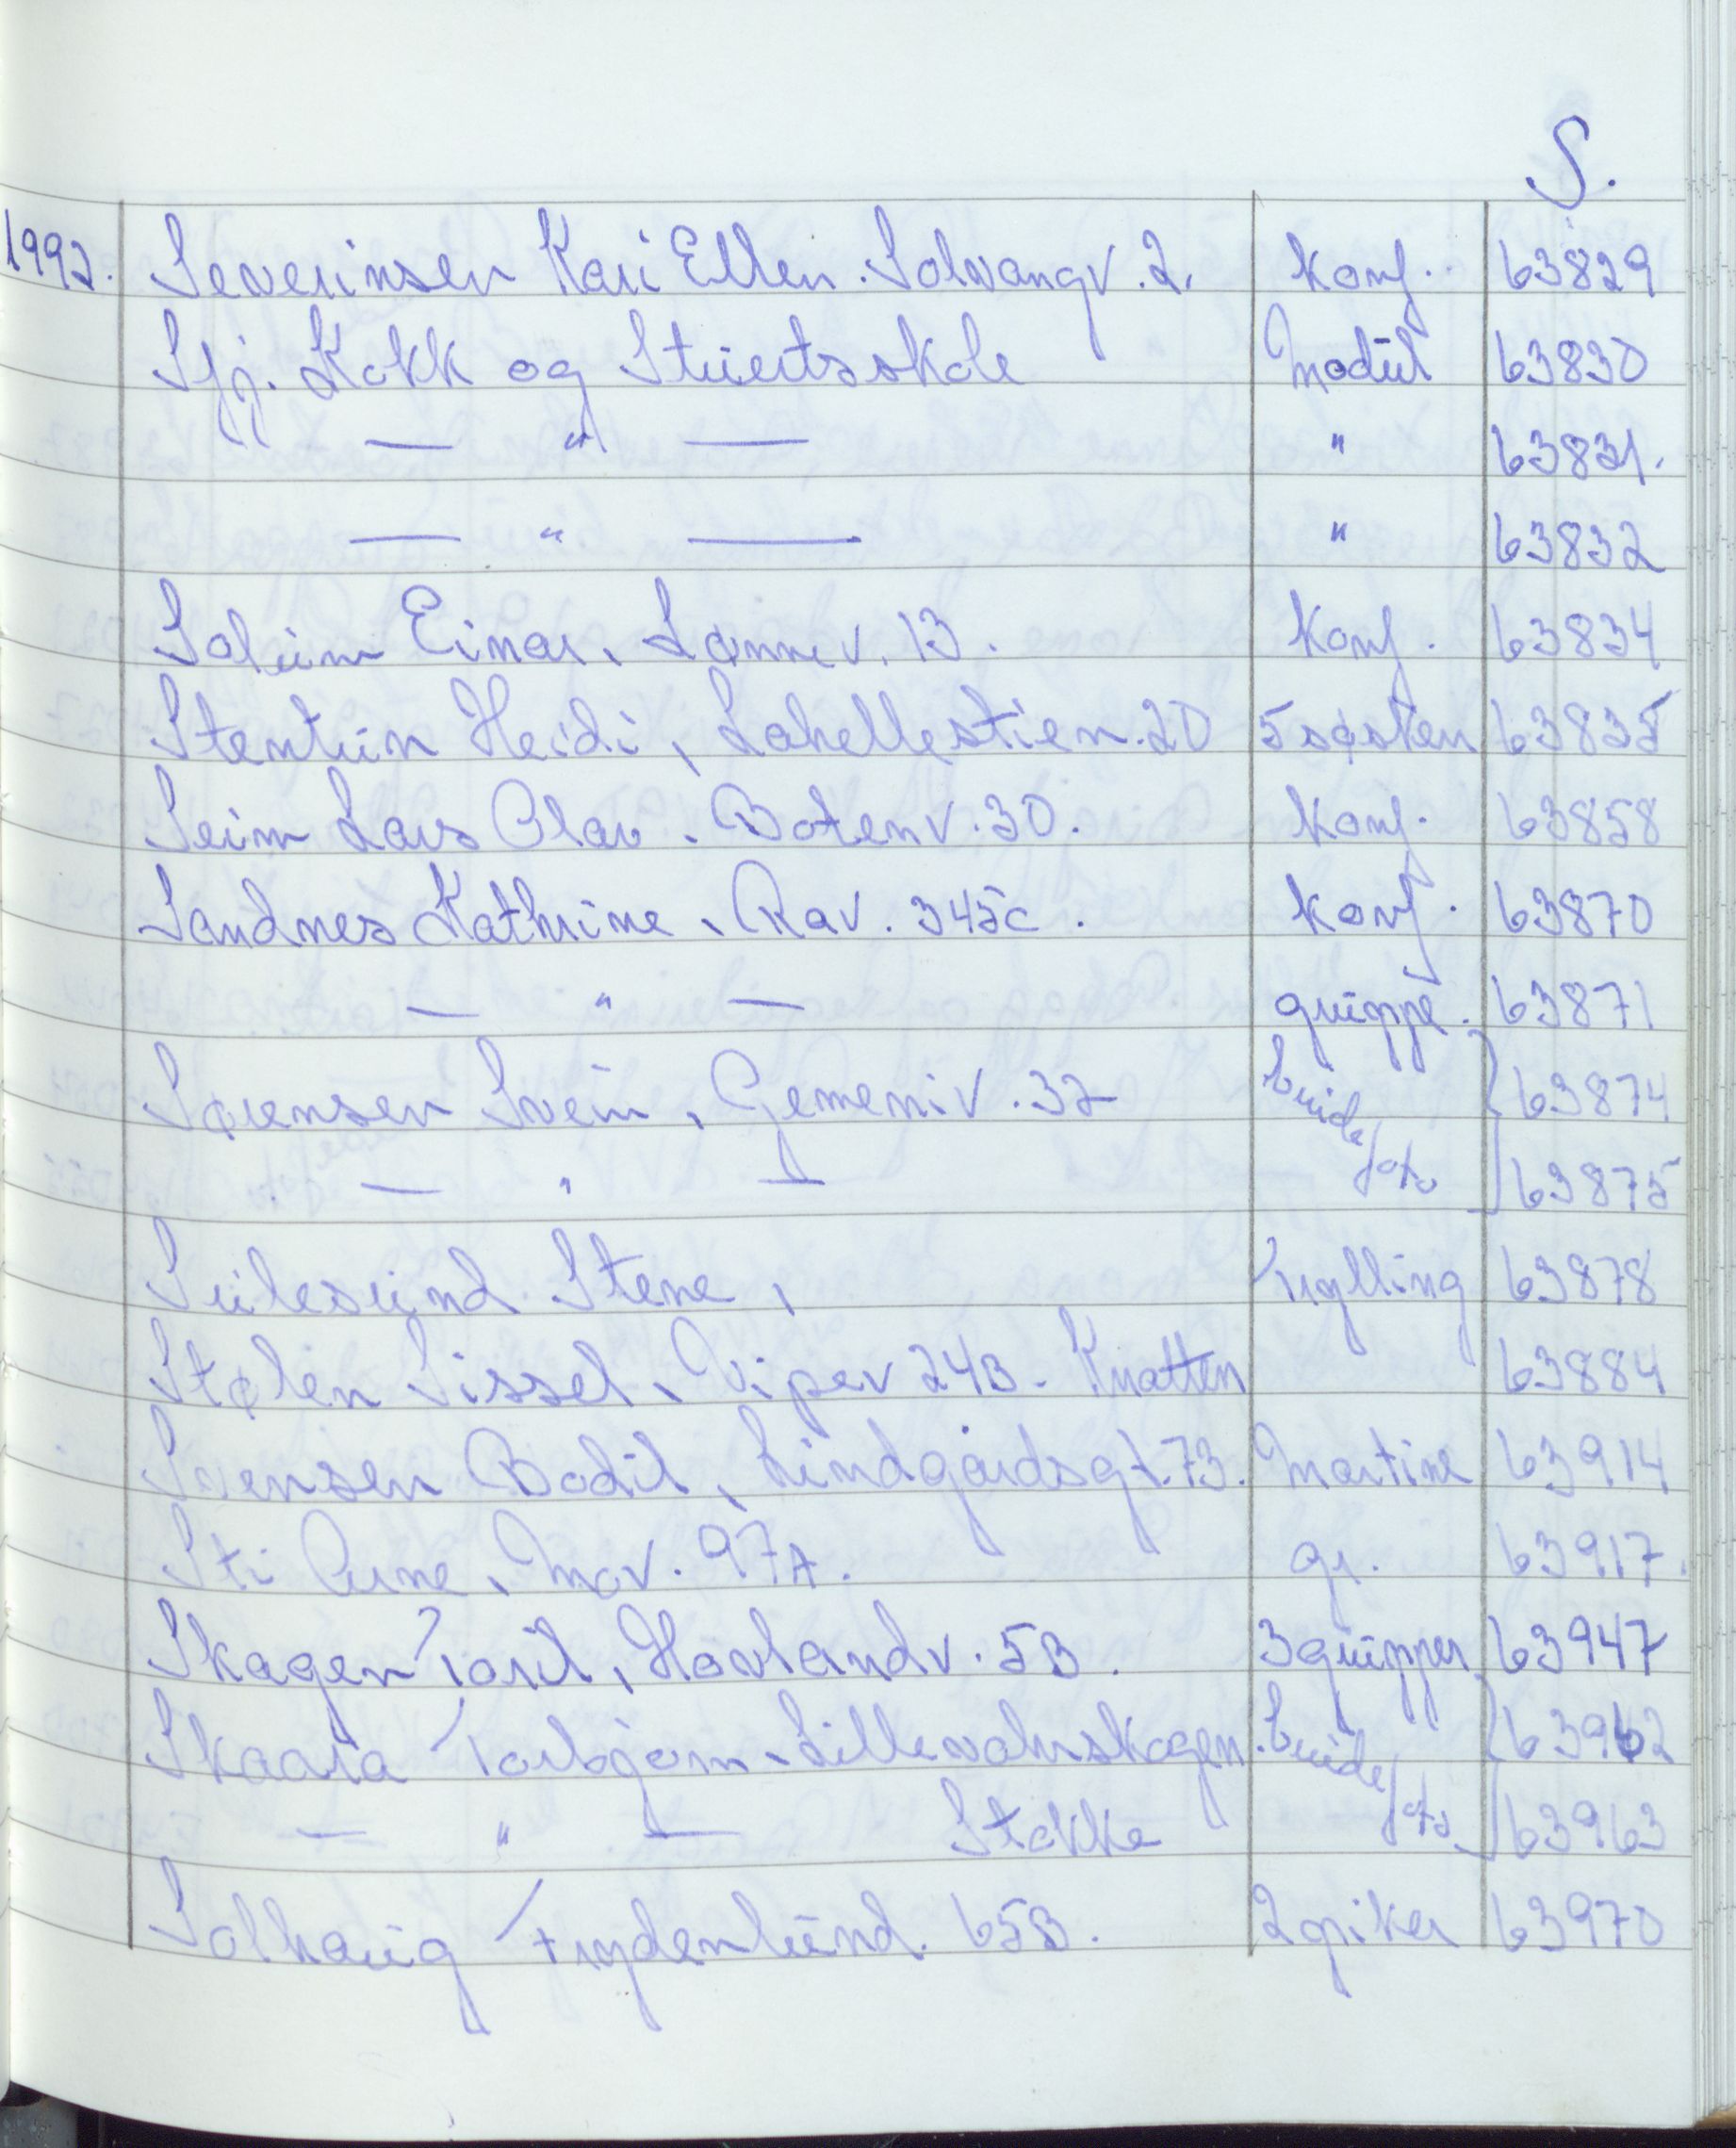 S.
1992. Severinsen Kari Ellen. Solvangv. 2. Konf. 63829
Sjj. Kokk og Stuertsskole Modul 63830
— " — " 63831.
— " — " 63832
Solum Einar, Lønnev. 13. Konf. 63834
Stentun Heidi, Lahellestien. 20 5 søsken 63835
Seim Lars Olav. Botenv. 30. Konf. 63858
Sandnes Kathrine, Rav. 345c. Konf. 63870
— " — gruppe. 63871
Sørensen Svein, Gemeniv. 32 brude 63874
— " — foto 63875
Sulesund Stene, kylling 63878
Stølen Sissel, Vipev 24B. Knatten 63884
Svensen Bodil, Lindgårdsgt. 73. Martine 63914
Sti Arne, Mov. 97A. gr. 63917.
Skagen Toril, Hovlandv. 5B. 3 grupper 63947
Skaara Torbjørn. Lillevahrskogen. brude 63962
— " — Stokke foto 63963
Solhaug Frydenlund. 65B. 2 piker 63970